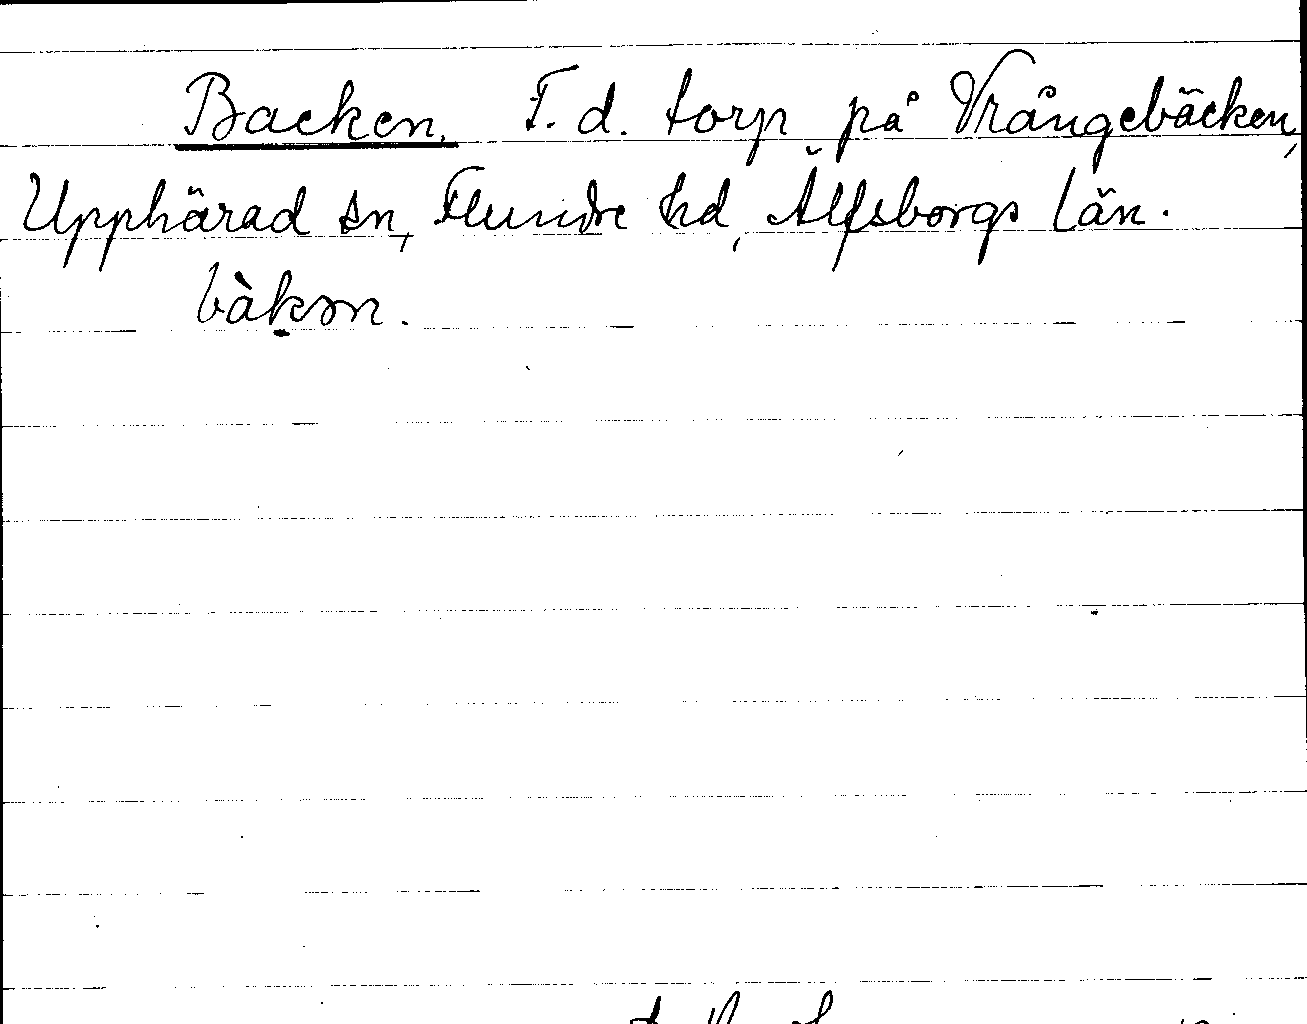 Backen. F. d. torp på Vrångebäcken,
Upphärad sn, Flundre hd, Älfsborgs län.
bàkɘn.